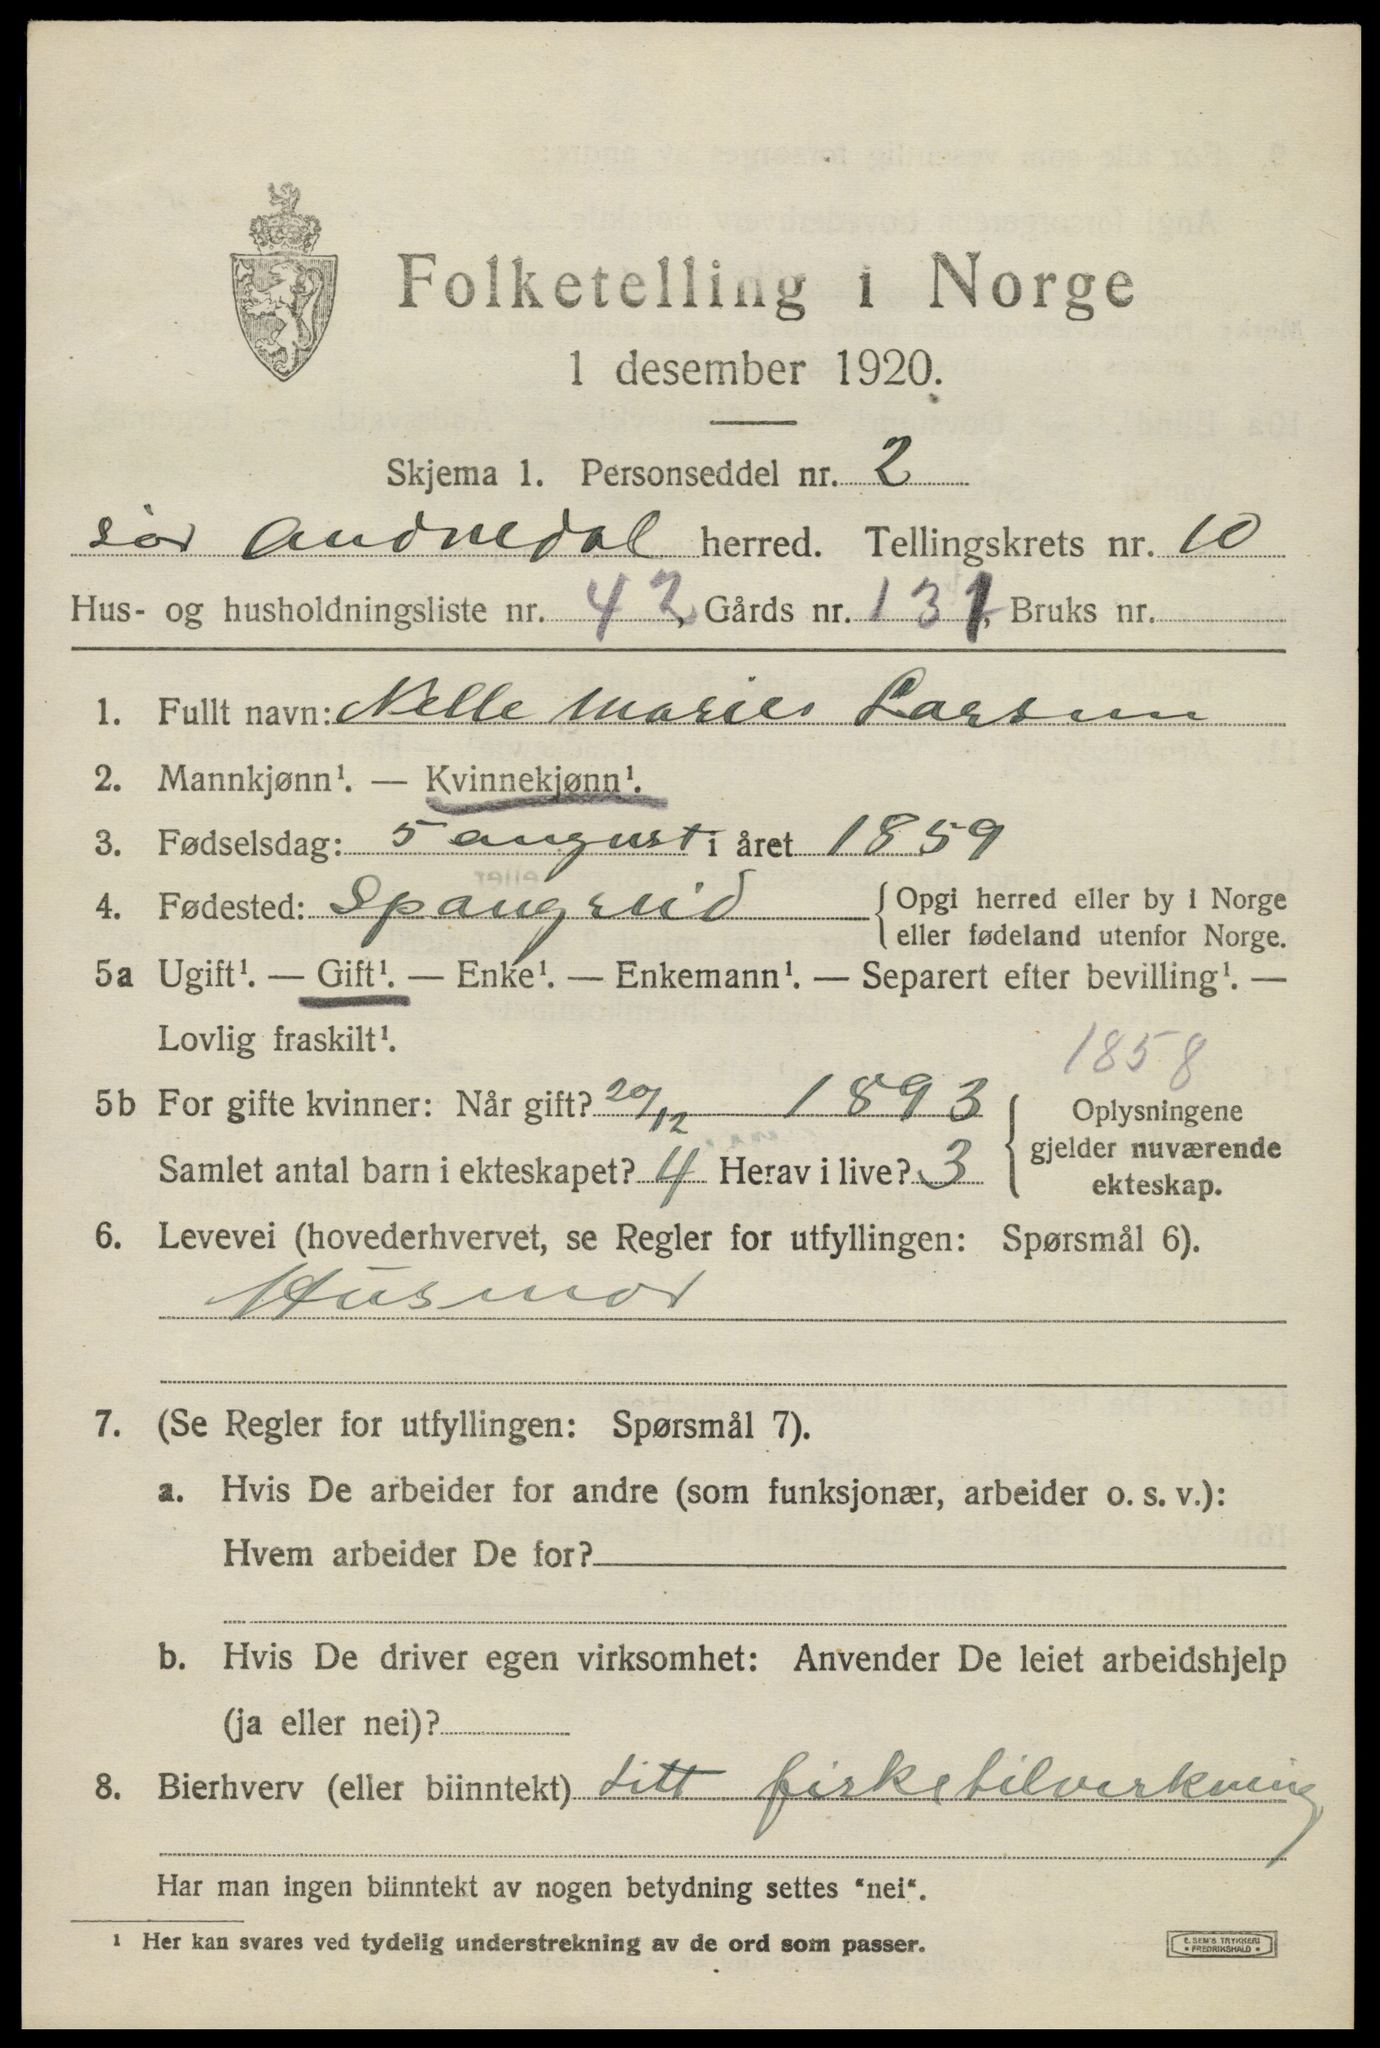 Folketelling i Norge
1 desember 1920.
Skjema 1. Personseddel nr. 2
Sør Audnedal herred. Tellingskrets nr. 10
Hus- og husholdningsliste nr. 42, Gårds nr. 131, Bruks nr.
1. Fullt navn: Nelle Marie Larsen
2. Mannkjønn¹. — Kvinnekjønn¹.
3. Fødselsdag: 5 august i året 1859
4. Fødested: Spangreid { Opgi herred eller by i Norge
eller fødeland utenfor Norge.
5a Ugift¹. — Gift¹. — Enke¹. — Enkemann¹. — Separert efter bevilling¹. —
Lovlig fraskilt¹.
1858
5b For gifte kvinner: Når gift? 20/12 1893 { Oplysningene
gjelder nuværende
Samlet antal barn i ekteskapet? 4 Herav i live? 3
ekteskap.
6. Levevei (hovederhvervet, se Regler for utfyllingen: Spørsmål 6).
Husmor
7. (Se Regler for utfyllingen: Spørsmål 7).
a. Hvis De arbeider for andre (som funksjonær, arbeider o. s. v.):
Hvem arbeider De for?
b. Hvis De driver egen virksomhet: Anvender De leiet arbeidshjelp
(ja eller nei)?
8. Bierhverv (eller biinntekt) litt fisketilvirkning
Har man ingen biinntekt av nogen betydning settes "nei".
¹ Her kan svares ved tydelig understrekning av de ord som passer.
E. SEM'S TRYKKERI
• FREDRIKSHALD •